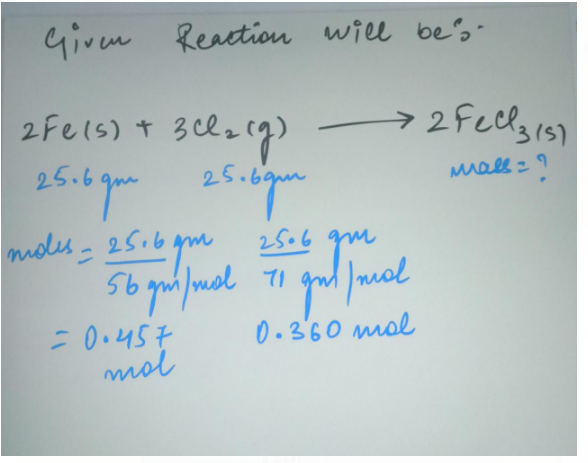 Given Reaction will be:-
2Fe(s) + 3Cl₂(g) ⟶ 2FeCl₃(s)
25.6 gm 25.6 gm mass = ?
moles = 25.6 gm / 56 gm/mol 25.6 gm / 71 gm/mol
= 0.457 mol 0.360 mol